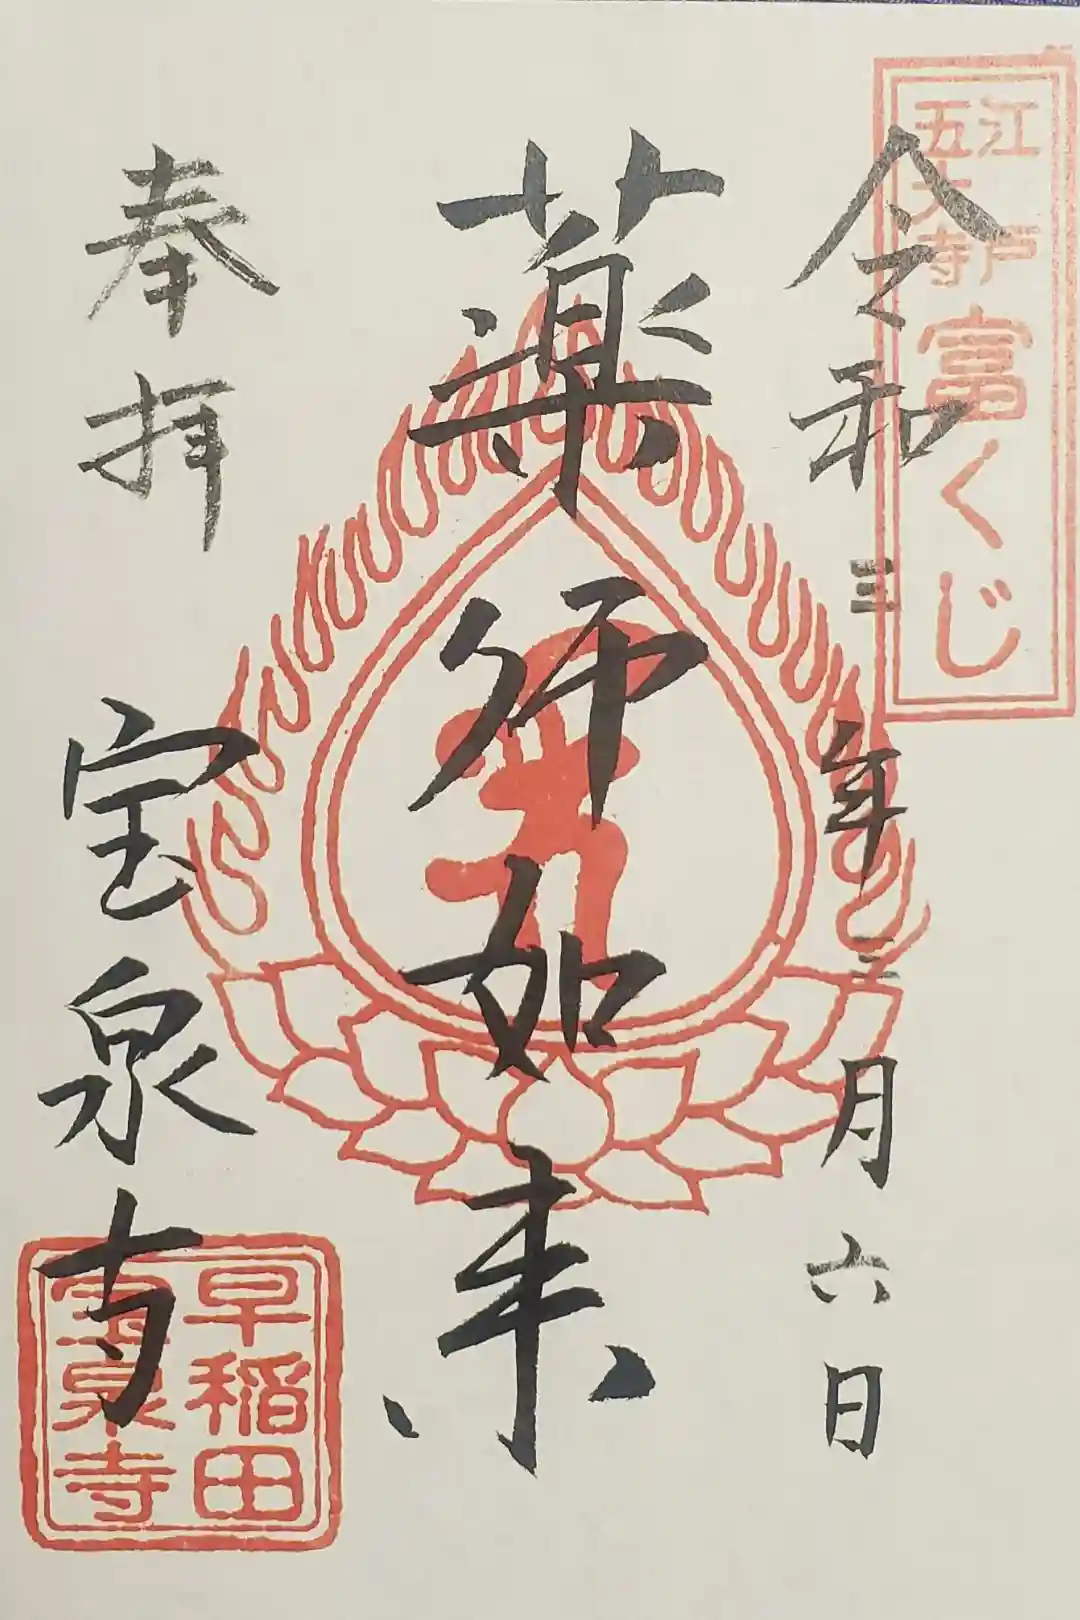 江戸
五大寺
富くじ
令和三年三月六日
薬师如来
奉拝
宝泉寺
早稲田
宝泉寺